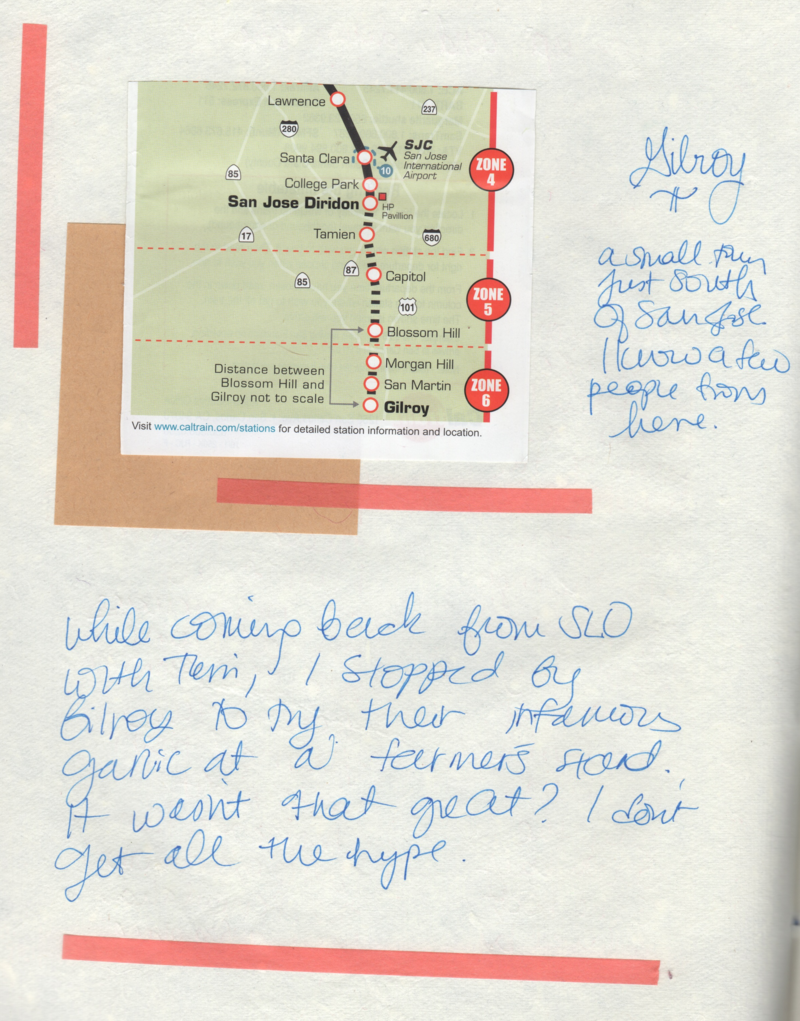 Lawrence
237
280
SJC
San Jose
International
Airport
Santa Clara
10
ZONE
4
85
College Park
San Jose Diridon
HP
Pavilion
17
Tamien
680
87
Capitol
85
ZONE
5
101
Blossom Hill
Distance between
Blossom Hill and
Gilroy not to scale
Morgan Hill
San Martin
ZONE
6
Gilroy
Visit www.caltrain.com/stations for detailed station information and location.
Gilroy
a small town
just south
of San Jose.
I know a few
people from
here.
while coming back from SLO
with Terri, I stopped by
Gilroy to try their infamous
garlic at a farmer's stand.
It wasn't that great? I don't
get all the hype.